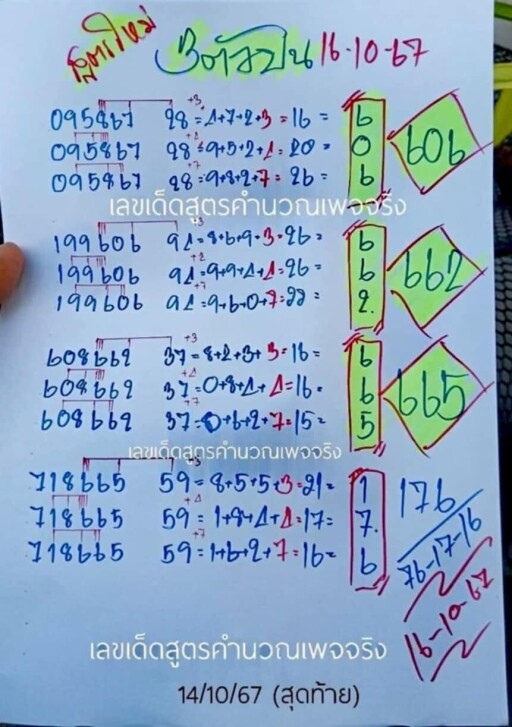 สูตรใหม่
3ตัวบน 16-10-67
+3
095867 28=1+7+2+3=16= 6
+1
095867 28=9+5+2+1=20= 0 606
+7
095867 28=9+8+2+7=26= 6
เลขเด็ดสูตรคำนวณเพจจริง
+3
199606 91=8+6+9+3=26= 6
+2
199606 91=9+9+1+1=26= 6 662
+7
199606 91=9+6+0+7=22= 2.
+3
608662 37=8+2+3+3=16= 6
+1
608662 37=0+8+1+1=16= 6 665
+7
608662 37=0+6+2+7=15= 5
เลขเด็ดสูตรคำนวณเพจจริง
+3
718665 59=8+5+5+3=21= 1 176
+1
718665 59=1+8+1+1=17= 7. 76-17-16
+7
718665 59=1+6+2+7=16= 6
16-10-67
เลขเด็ดสูตรคำนวณเพจจริง
14/10/67 (สุดท้าย)